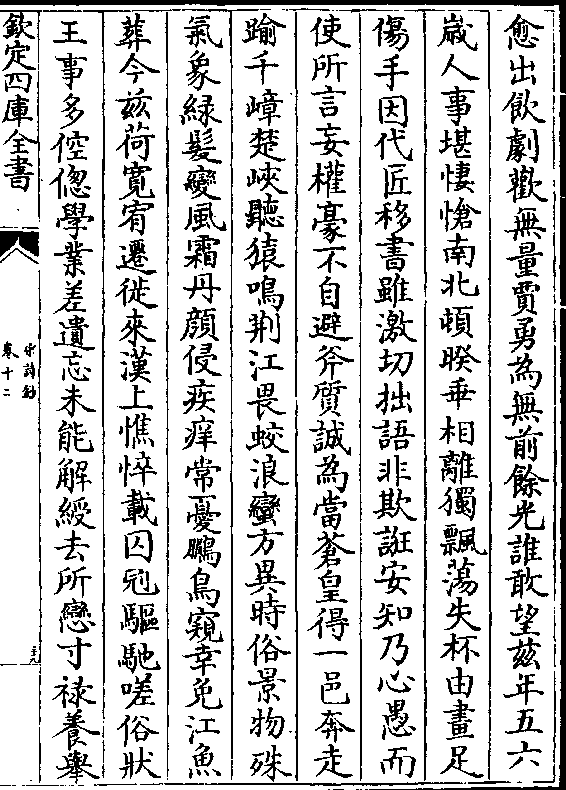 愈出飲劇歡無量賈勇為無前餘光誰敢望兹年五六
歳人事堪悽愴南北頓暌乖相離獨飄蕩失杯由畫足
傷手因代匠移書雖激切拙語非欺誑安知乃心愚而
使所言妄權豪不自避斧質誠為當蒼皇得一邑奔走
踰千嶂楚峽聽猿鳴荆江畏蛟浪蠻方異時俗景物殊
氣象緑髮變風霜丹顔侵疾痒常憂鵩鳥窺幸免江魚
葬今兹荷寛宥遷徙來漢上憔悴載囚刓驅馳嗟俗狀
王事多倥偬學業差遺忘未能解綬去所戀寸禄養舉
欽定四庫全書
宋詩鈔
卷十二